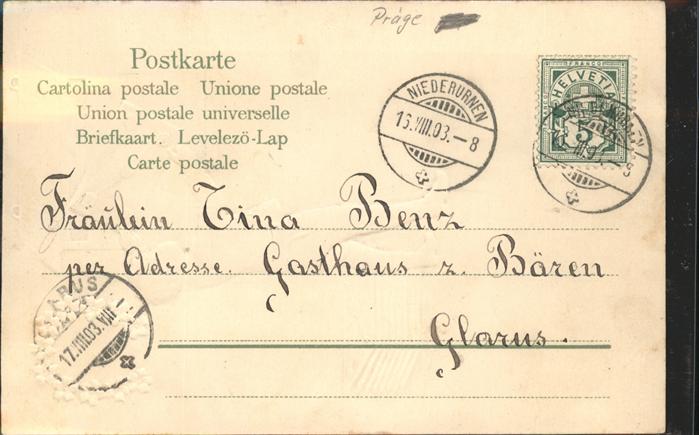 Präge
Postkarte
Cartolina postale Unione postale
Union postale universelle
Briefkaart. Levelezö-Lap
Carte postale
NIEDERURNEN
13.VIII.03.–8
FRANCO
HELVETIA
5
Fräulein Tina Benz
per Adresse. Gasthaus z. Bären
Glarus.
GLARUS
17.VIII.03.VIII